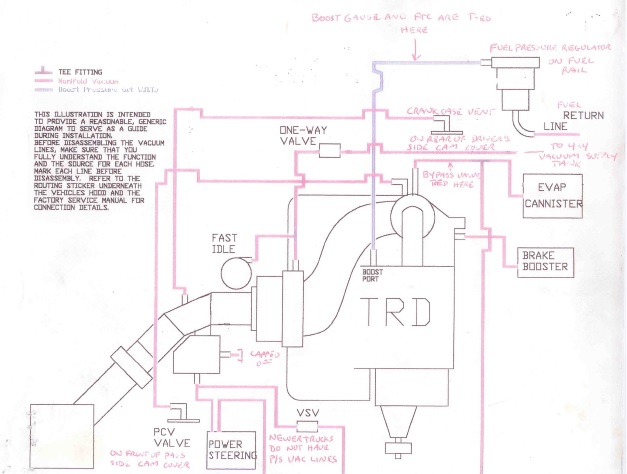 BOOST GAUGE AND FTC ARE T-RD
HERE
FUEL PRESSURE REGULATOR
ON FUEL
RAIL
TEE FITTING
Manifold Vacuum
THIS ILLUSTRATION IS INTENDED
TO PROVIDE A REASONABLE, GENERIC
DIAGRAM TO SERVE AS A GUIDE
DURING INSTALLATION.
BEFORE DISASSEMBLING THE VACUUM
LINES, MAKE SURE THAT YOU
FULLY UNDERSTAND THE FUNCTION
AND THE SOURCE FOR EACH HOSE.
MARK EACH LINE BEFORE
DISASSEMBLY. REFER TO THE
ROUTING STICKER UNDERNEATH
THE VEHICLES HOOD AND THE
FACTORY SERVICE MANUAL FOR
CONNECTION DETAILS.
CRANKCASE VENT
FUEL
RETURN
LINE
ONE-WAY
VALVE
ON REAR OF DRIVERS
SIDE CAM COVER
TO 4x4
VACUUM SUPPLY
TANK
BYPASS VALVE
TRD HERE
EVAP
CANNISTER
FAST
IDLE
BRAKE
BOOSTER
BOOST
PORT
TRD
CAPPED
OFF
VSV
PCV
VALVE
ON FRONT OF PASS
SIDE CAM COVER
POWER
STEERING
NEWER TRUCKS
DO NOT HAVE
P/S VAC LINES